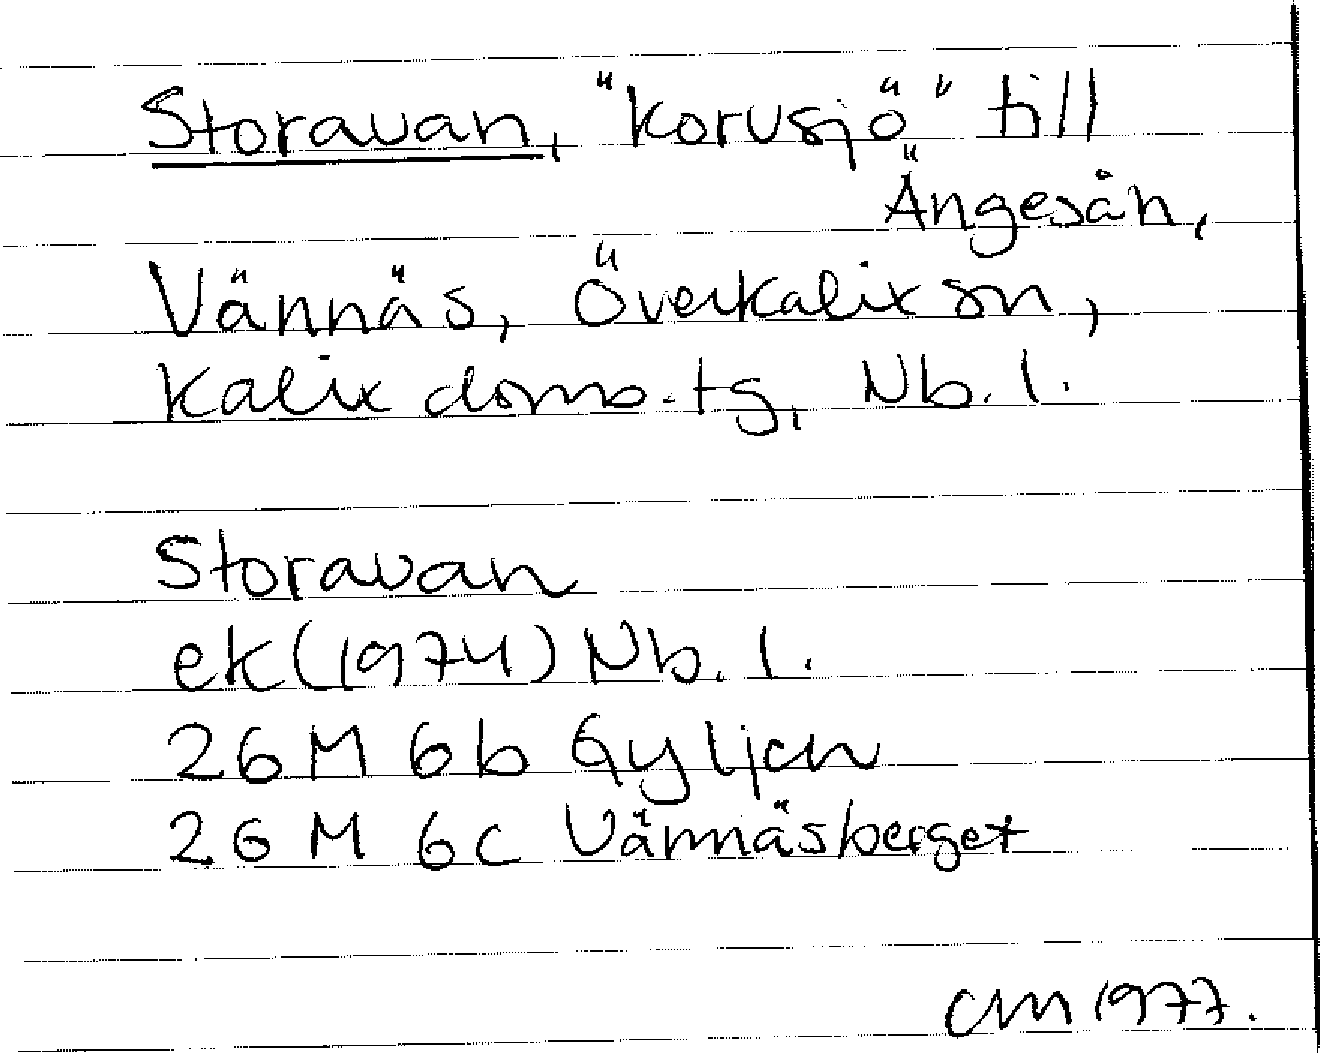 Storavan, "korvsjö" till
Ängesån,
Vännäs, Överkalix sn,
Kalix doms.tg, Nb. l.
Storavan
ek (1974) Nb. l.
26 M 6b Gyljen
26 M 6c Vännäsberget
CM 1977.